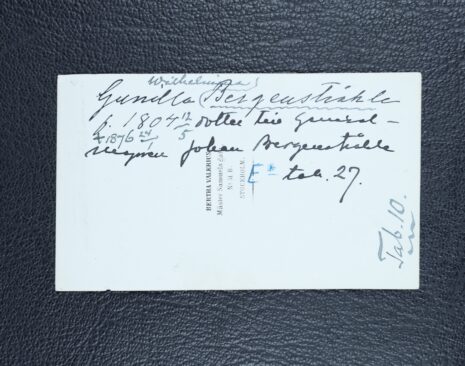 Wilhelmina
Gundla Bergenstråhle
f. 1804 12/5 dotter till General-
† 1876 24/1
majoren Johan Bergenstråhle
tab. 27.
BERTHA VALERIUS
Mäster Samuels Gata
STOCKHOLM.
Tab. 10.